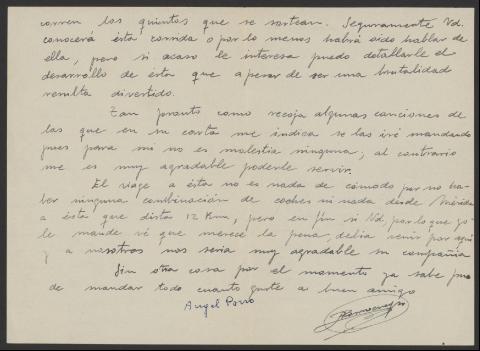 corren los quintos que se sortean. Seguramente Vd.
conocerá ésta corrida o por lo menos habrá oido hablar de
ella, pero si acaso le interesa puedo detallarle el
desarrollo de ésta que apesar de ser una brutalidad
resulta divertido.
Tan pronto como recoja algunas canciones de
las que en su carta me indica se las iré mandando
pues para mi no es molestia ninguna, al contrario
me es muy agradable poderle servir.
El viage a ésta no es nada de cómodo por no ha-
ber ninguna combinación de coches ni nada desde Mérida
a ésta que distas 12 Km, pero en fin si Vd. por lo que yo
le mande vé que merece la pena, debia venir por aqui
y a nosotros nos seria muy agradable su compañia
Sin otra cosa por el momento ya sabe pue-
de mandar todo cuanto guste a su buen amigo
Angel Porro